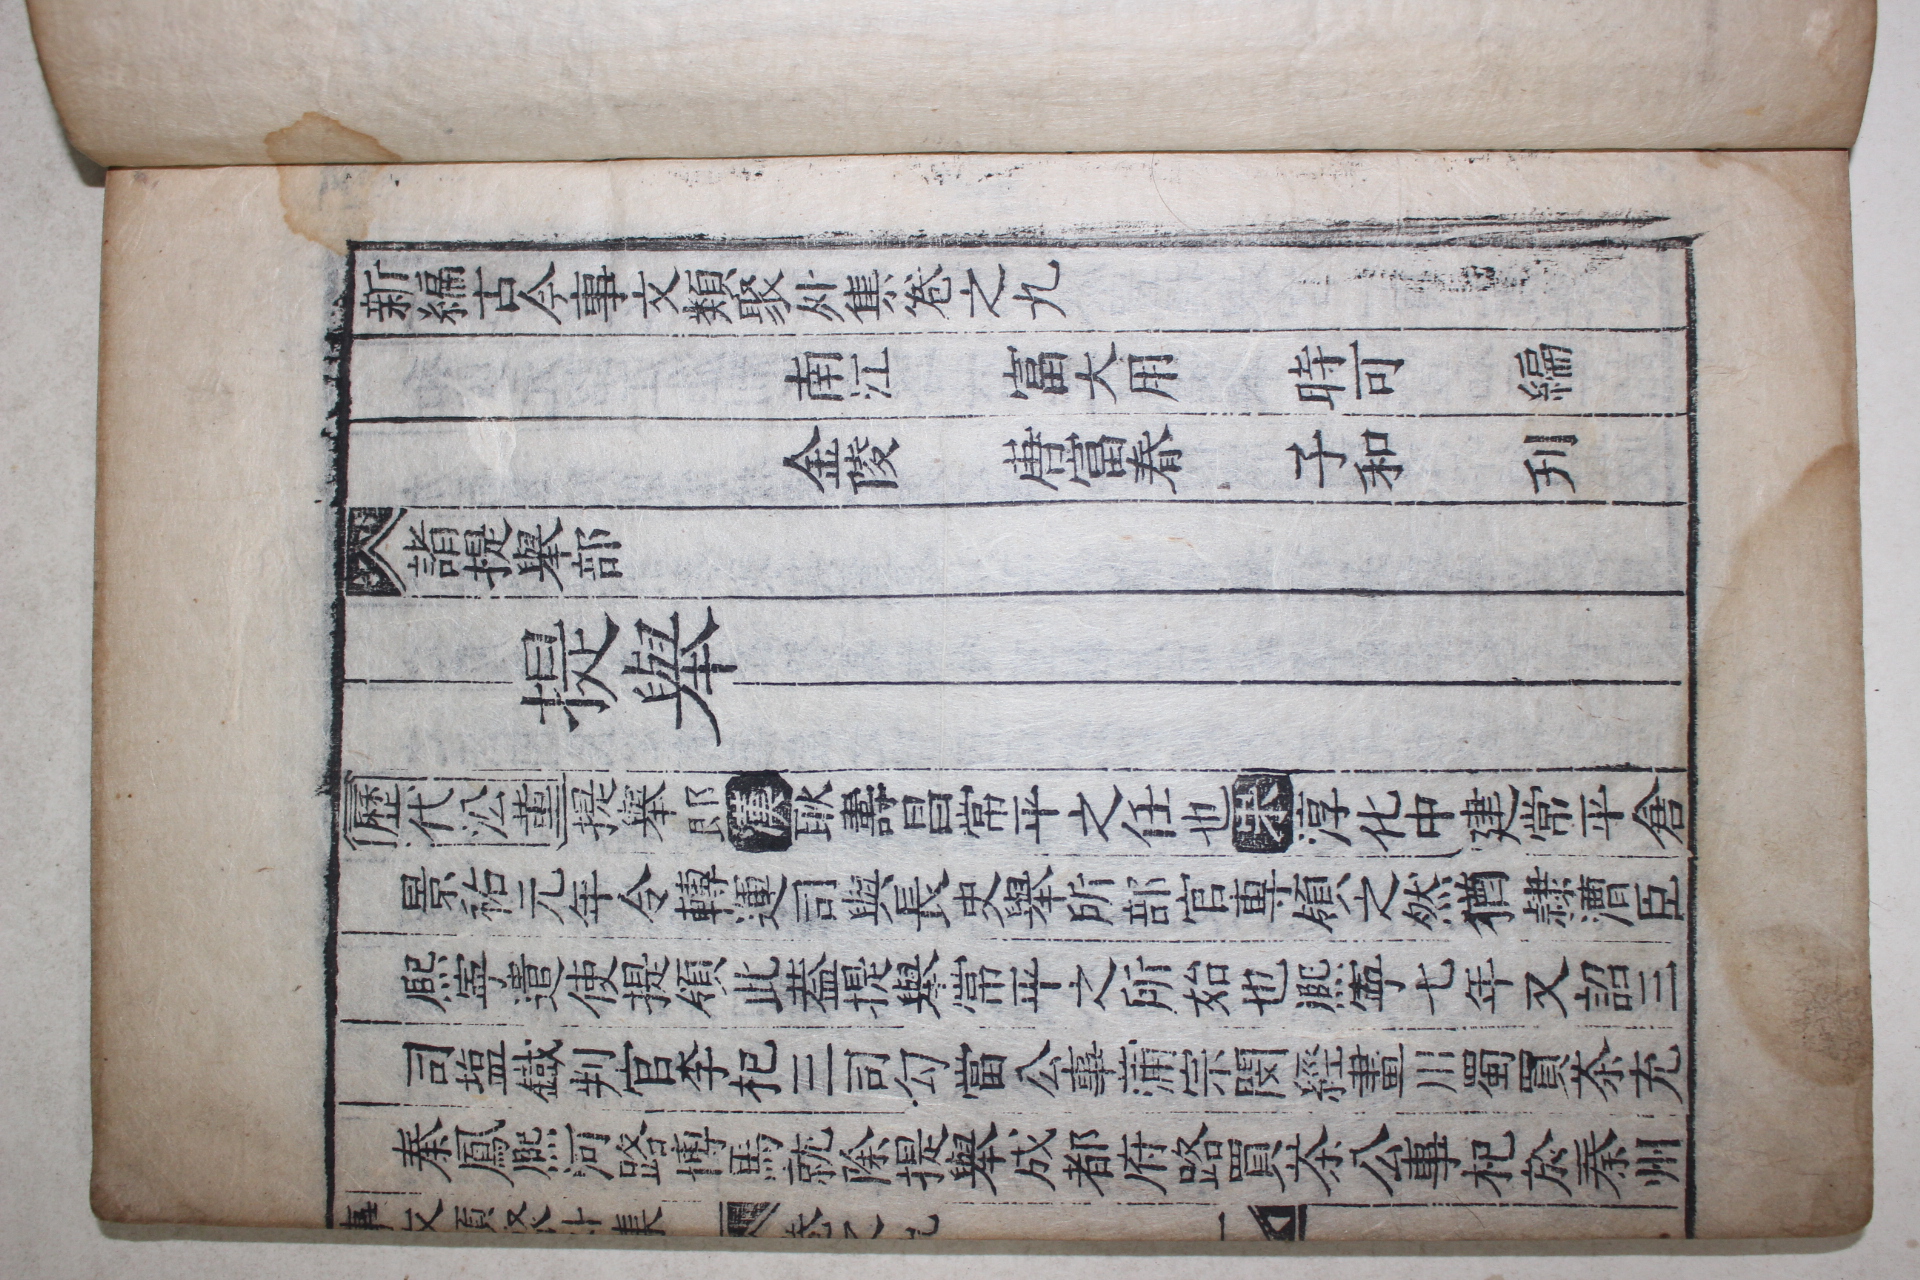 新編古今事文類聚外集卷之九
南江 富大用 時可 編
金陵 唐富春 子和 刋
諸提舉部
提舉
歷代沿革提舉郎漢耿壽昌常平之任也宋淳化中建常平倉
景祐元年令轉運司與長吏舉所部官專領之然猶隷漕臣
熙寧遣使提領此蓋提舉常平之所始也熙寧七年又詔三
司塩鐵判官李杞三司勾當公事蒲宗閔經畫川蜀買茶充
秦鳳熙河路博馬就除提舉成都府路買茶公事杞於秦州
事文類聚外集 卷之九 一